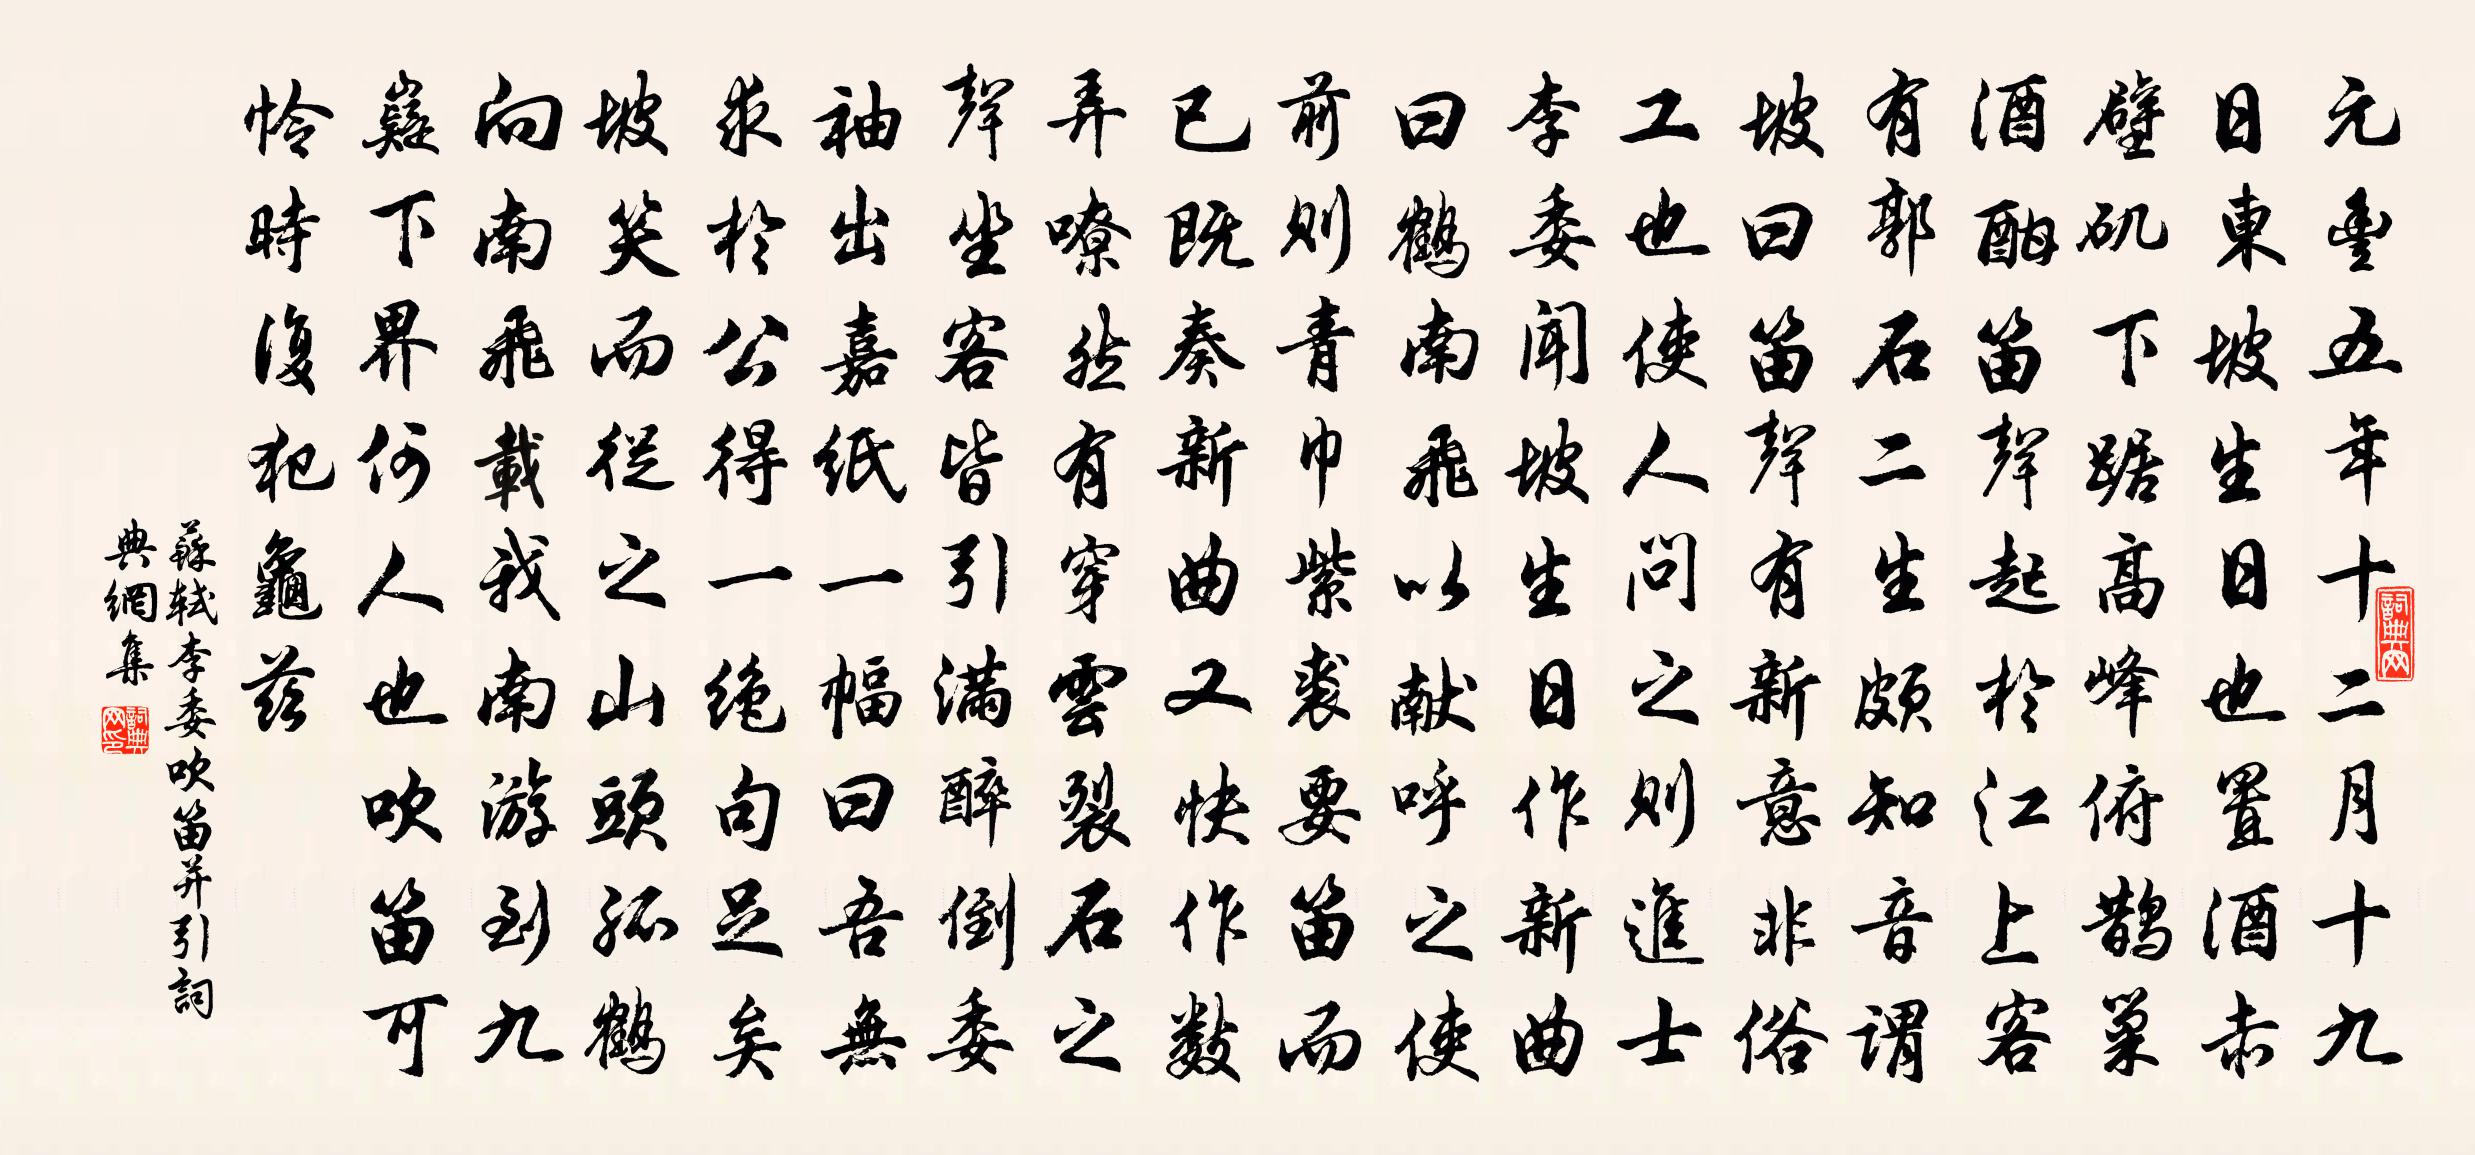 元豐五年十二月十九
日東坡生日也置酒赤
壁矶下踞高峰俯鹊巢
酒酣笛聲起於江上客
有郭石二生頗知音謂
坡曰笛聲有新意非俗
工也使人問之則進士
李委聞坡生日作新曲
曰鶴南飛以献呼之使
前則青巾紫裘要笛而
已既奏新曲又快作数
弄嘹然有穿雲裂石之
聲坐客皆引满醉倒委
袖出嘉紙一幅曰吾無
求於公得一绝句足矣
坡笑而從之山頭孤鶴
向南飛載我南游到九
嶷下界何人也吹笛可
怜時復犯龜茲
蘇軾李委吹笛并引詞
典網集
詞典网
詞典网印